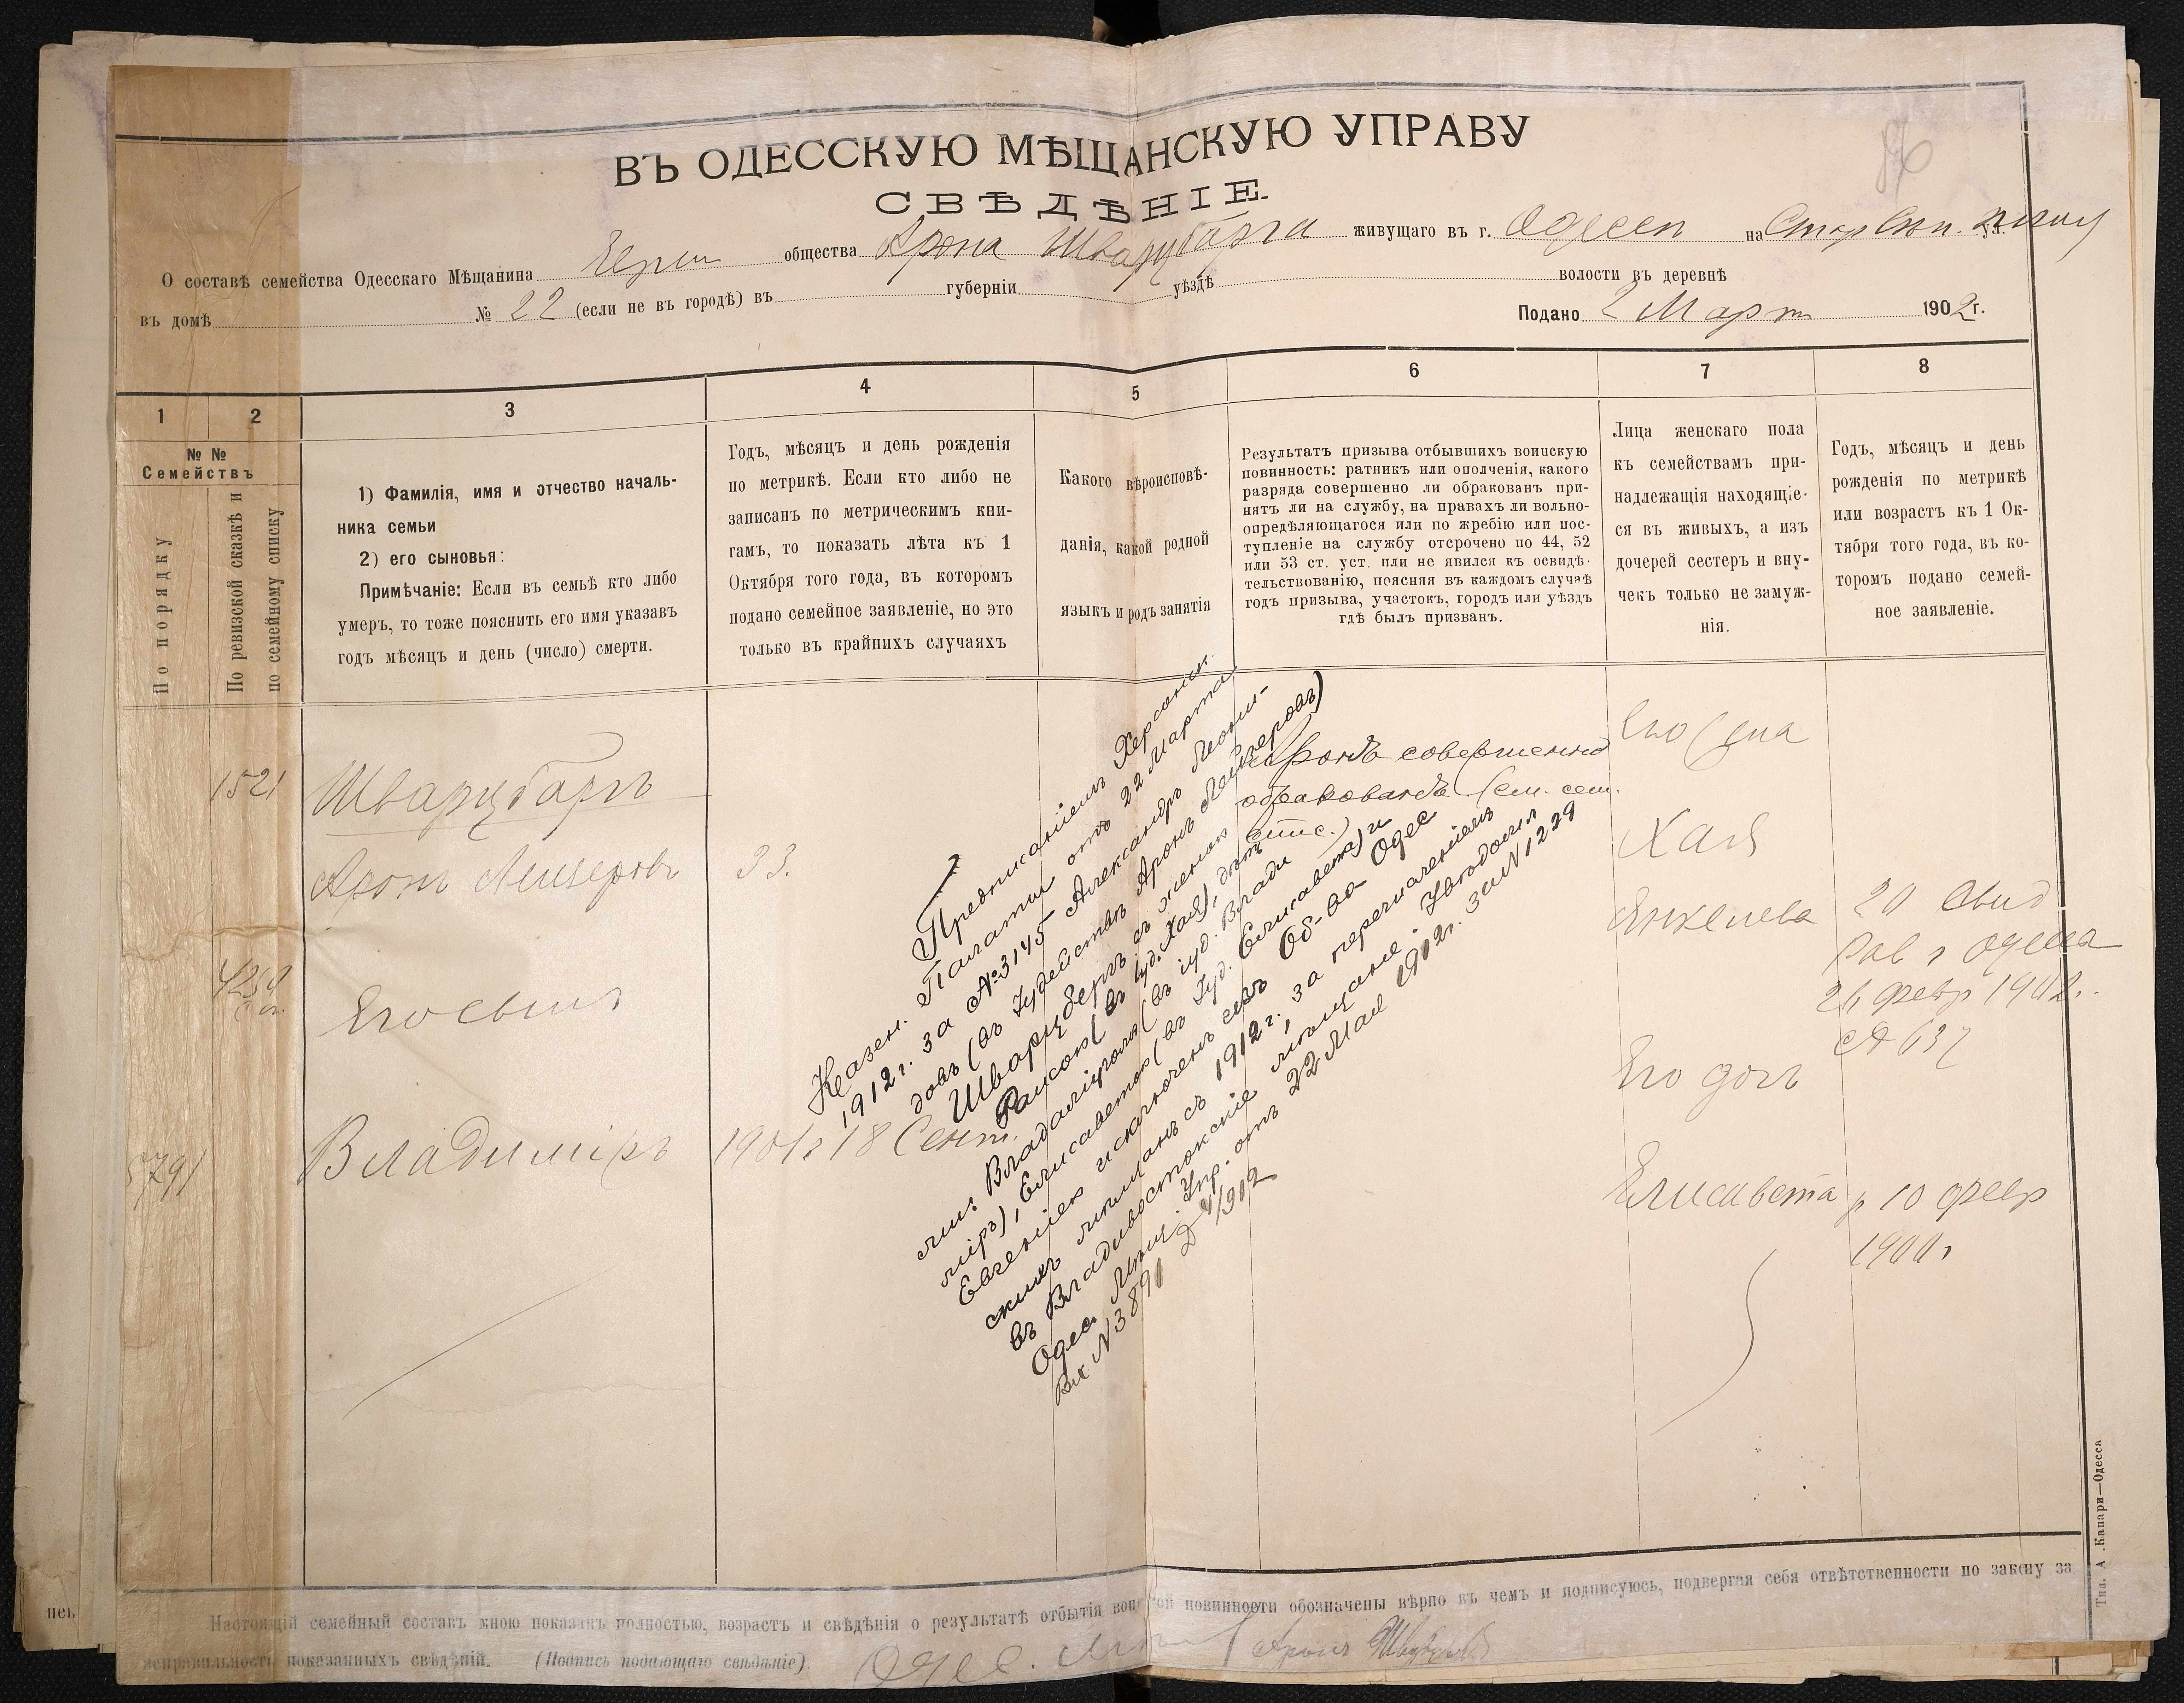 ВЪ ОДЕССКУЮ МѢЩАНСКУЮ УПРАВУ
СВѢДѢНІЕ.
О составѣ семейства Одесскаго Мѣщанина Герш общества Арона Шварцбарга живущаго въ г. Одессѣ на ул.
въ домѣ № 22 (если не въ городѣ) въ губерніи уѣздѣ волости въ деревнѣ
Подано 2 Март 1902 г.
1 2 3 4 5 6 7 8
№ №
Семействъ
По порядку
По ревизской сказкѣ и
по семейному списку
1) Фамилія, имя и отчество началь-
ника семьи
2) его сыновья:
Примѣчаніе: Если въ семьѣ кто либо
умеръ, то тоже пояснить его имя указавъ
годъ мѣсяцъ и день (число) смерти.
Годъ, мѣсяцъ и день рожденія
по метрикѣ. Если кто либо не
записанъ по метрическимъ кни-
гамъ, то показать лѣта къ 1
Октября того года, въ которомъ
подано семейное заявленіе, но это
только въ крайнихъ случаяхъ
Какого вѣроисповѣ-
данія, какой родной
языкъ и родъ занятія
Результатъ призыва отбывшихъ воинскую
повинность: ратникъ или ополченія, какого
разряда совершенно ли обракованъ при-
нятъ ли на службу, на правахъ ли вольно-
опредѣляющагося или по жребію или пос-
тупленіе на службу отсрочено по 44, 52
или 53 ст. уст. или не явился къ освидѣ-
тельствованію, поясняя въ каждомъ случаѣ
годъ призыва, участокъ, городъ или уѣздъ
гдѣ былъ призванъ.
Лица женскаго пола
къ семействамъ при-
надлежащія находящіе-
ся въ живыхъ, а изъ
дочерей сестеръ и вну-
чекъ только не замуж-
нія.
Годъ, мѣсяцъ и день
рожденія по метрикѣ
или возрастъ къ 1 Ок-
тября того года, въ ко-
торомъ подано семей-
ное заявленіе.
1521 Шварцбаргъ
Аронъ Лейзеровъ 33.
Его сынъ
5791 Владиміръ 1901 г 18 Сент.
Аронъ совершенно
обракованъ (см. сем.
спис.)
Его жена
Хая
Янкелева 20
Одесса
26 февр 1902 г.
№ 637
Его дочь
Елисавета р 10 февр
1900 г
Предписаніемъ Херсонск.
Казен. Палаты отъ 22 Марта
1912 г. за №3145 Александръ Леони-
довъ (въ Іудействѣ Аронъ Лейзеровъ)
Шварцбергъ съ женою
Раисою (въ Іуд. Хая), дѣть
ми: Владиміромъ (въ іуд. Влади
міръ), Елисаветою (въ Іуд. Елисавета) и
Евгеніею исключенъ изъ Об-ва Одес
скихъ мѣщанъ съ 1912 г., за перечисленіемъ
въ Владивостокскіе мѣщане. Уводомл
Одес. Мѣщ. Упр. отъ 22 Мая 1912 г. за №1229
Вх №3891 1912
Настоящій семейный составъ мною показанъ полностью, возрастъ и свѣдѣнія о результатѣ отбытія воинской повинности обозначены вѣрно въ чемъ и подписуюсь, подвергая себя отвѣтственности по закону за
неправильность показанныхъ свѣдѣній. (Подпись подающаго свѣдѣніе) Одес. Аронъ
Тип. А. Капари—Одесса